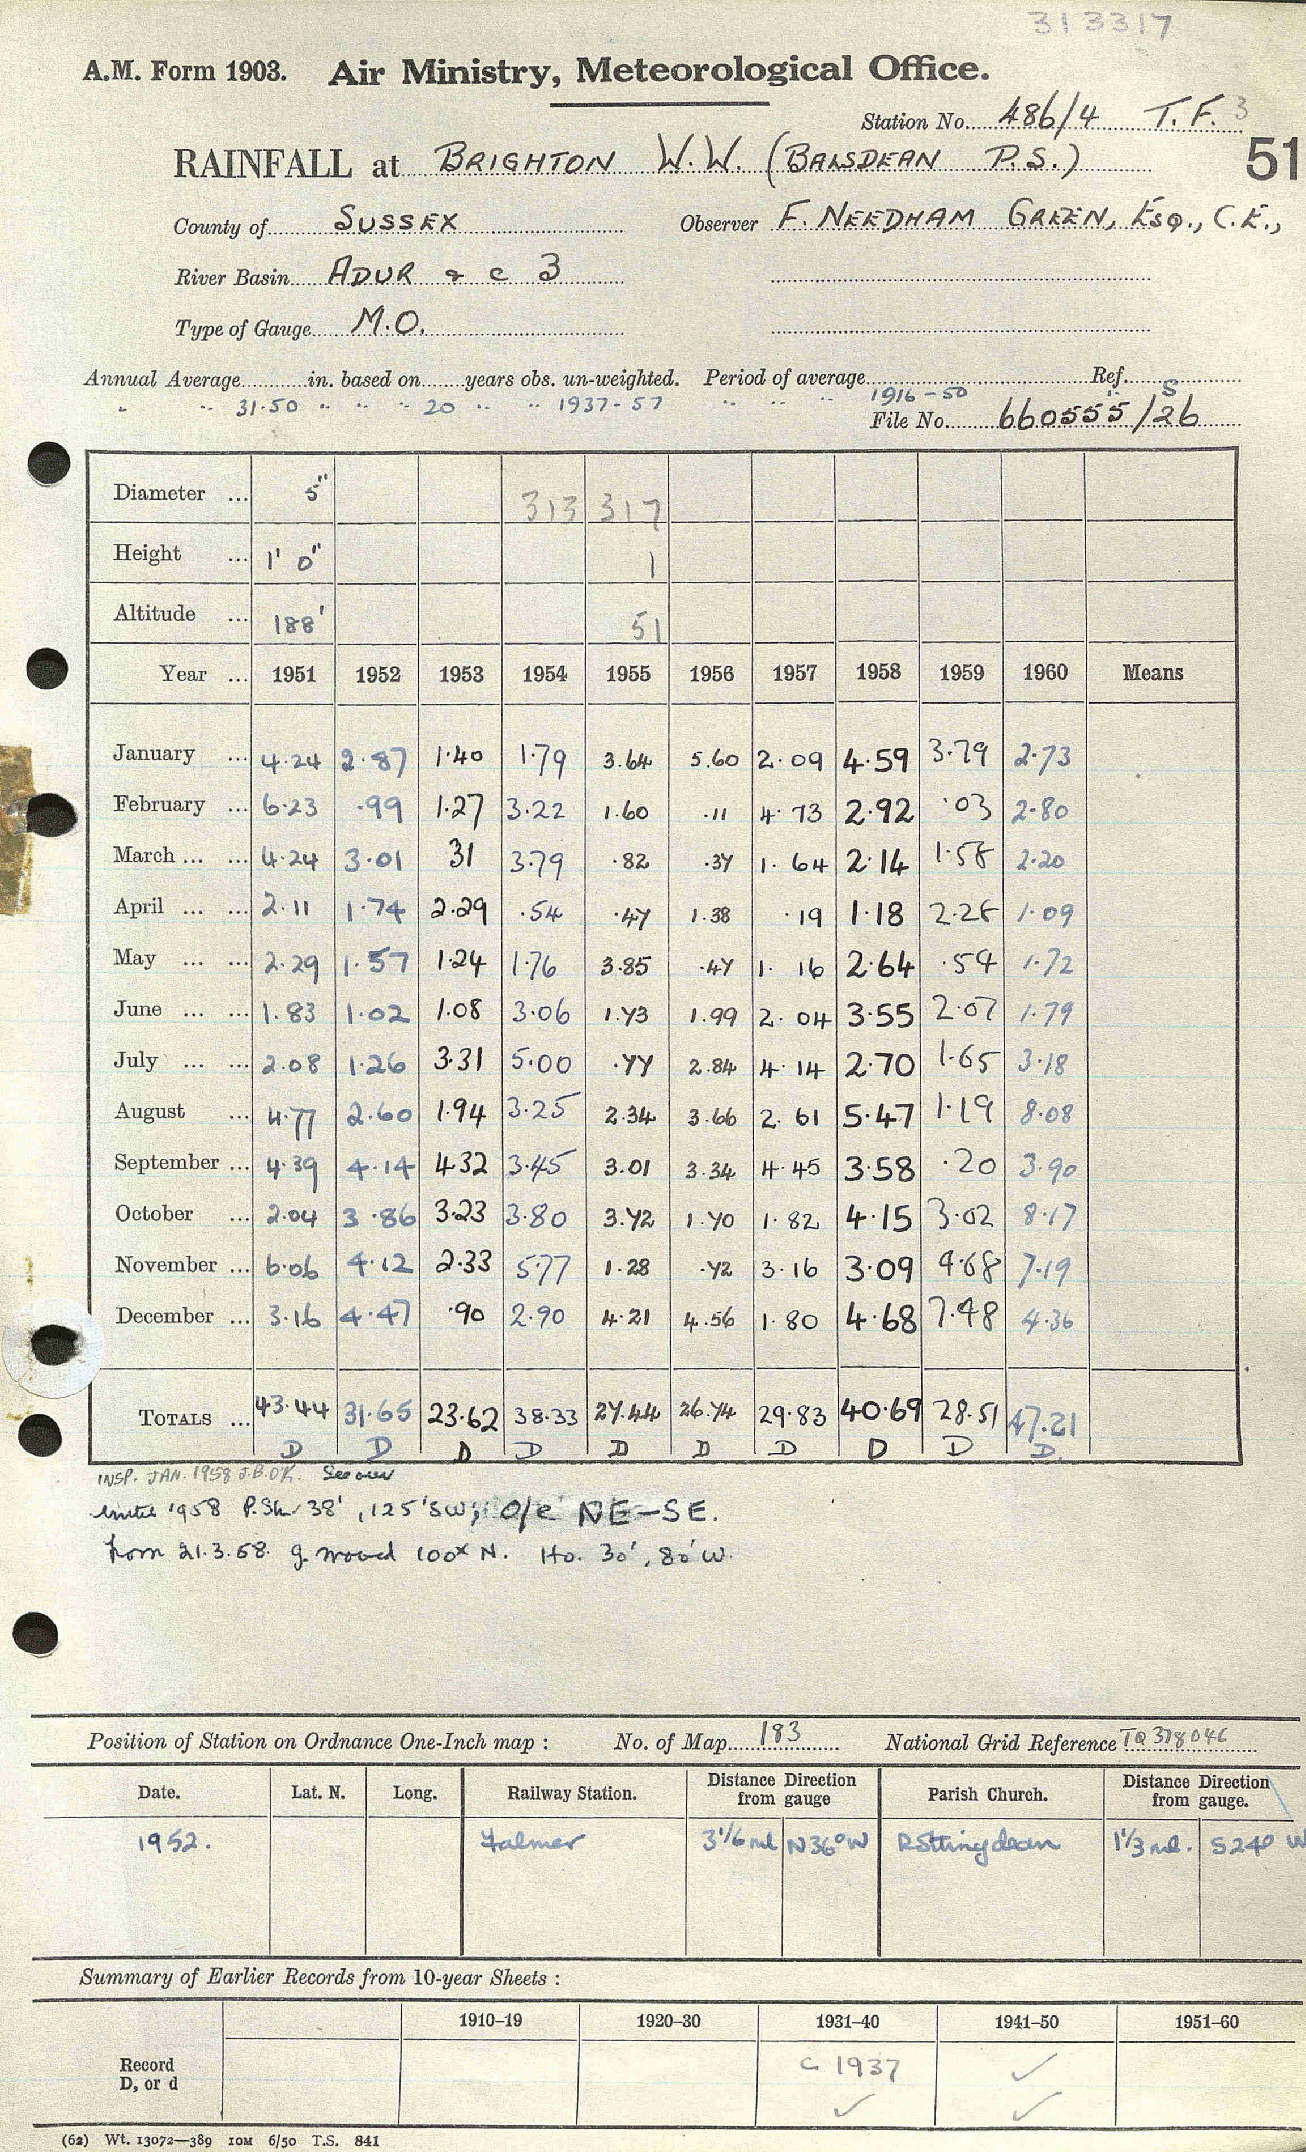 313317
A.M. Form 1903. Air Ministry, Meteorological Office.
Station No. 486/4 T.F. 3
RAINFALL at BRIGHTON W.W. (BALSDEAN P.S.) 51
County of SUSSEX Observer F. NEEDHAM GREEN, ESQ., C.E.,
River Basin ADUR & c 3
Type of Gauge M.O.
Annual Average in. based on years obs. un-weighted. Period of average Ref.
" " 31.50 " " " 20 " " 1937-57 " " " 1916-50 " S
File No. 660555/26
Diameter ... 5" 313 317
Height ... 1' 0" 1
Altitude ... 188' 51
Year ... 1951 1952 1953 1954 1955 1956 1957 1958 1959 1960 Means
January ... 4.24 2.87 1.40 1.79 3.64 5.60 2.09 4.59 3.79 2.73
February ... 6.23 .99 1.27 3.22 1.60 .11 4.73 2.92 .03 2.80
March ... ... 4.24 3.01 31 3.79 .82 .37 1.64 2.14 1.58 2.20
April ... ... 2.11 1.74 2.29 .54 .47 1.38 .19 1.18 2.28 1.09
May ... ... 2.29 1.57 1.24 1.76 3.85 .47 1.16 2.64 .54 1.72
June ... ... 1.83 1.02 1.08 3.06 1.73 1.99 2.04 3.55 2.07 1.79
July ... ... 2.08 1.26 3.31 5.00 .77 2.84 4.14 2.70 1.65 3.18
August ... 4.77 2.60 1.94 3.25 2.34 3.66 2.61 5.47 1.19 8.08
September ... 4.39 4.14 4.32 3.45 3.01 3.34 4.45 3.58 .20 3.90
October ... 2.04 3.86 3.23 3.80 3.72 1.70 1.82 4.15 3.02 8.17
November ... 6.06 4.12 2.33 5.77 1.28 .72 3.16 3.09 4.68 7.19
December ... 3.16 4.47 .90 2.90 4.21 4.56 1.80 4.68 7.48 4.36
TOTALS ... 43.44 31.65 23.62 38.33 27.44 26.74 29.83 40.69 28.51 47.21
D D D D D D D D D D.
INSP. JAN. 1958 J.B.OK. See over
until 1958 P.Sh 38', 125' SW; O/c NE-SE.
from 21.3.58. g. moved 100x N. Ho. 30', 80' W.
Position of Station on Ordnance One-Inch map : No. of Map 183 National Grid Reference TQ 378046
Date. Lat. N. Long. Railway Station. Distance Direction from gauge Parish Church. Distance Direction from gauge.
1952. Falmer 3 1/6 ml N36°W Rottingdean 1 1/3 ml. S24° W
Summary of Earlier Records from 10-year Sheets :
1910–19 1920–30 1931–40 1941–50 1951–60
Record D, or d c 1937 ✓
✓ ✓
(62) Wt. 13072—389 10M 6/50 T.S. 841